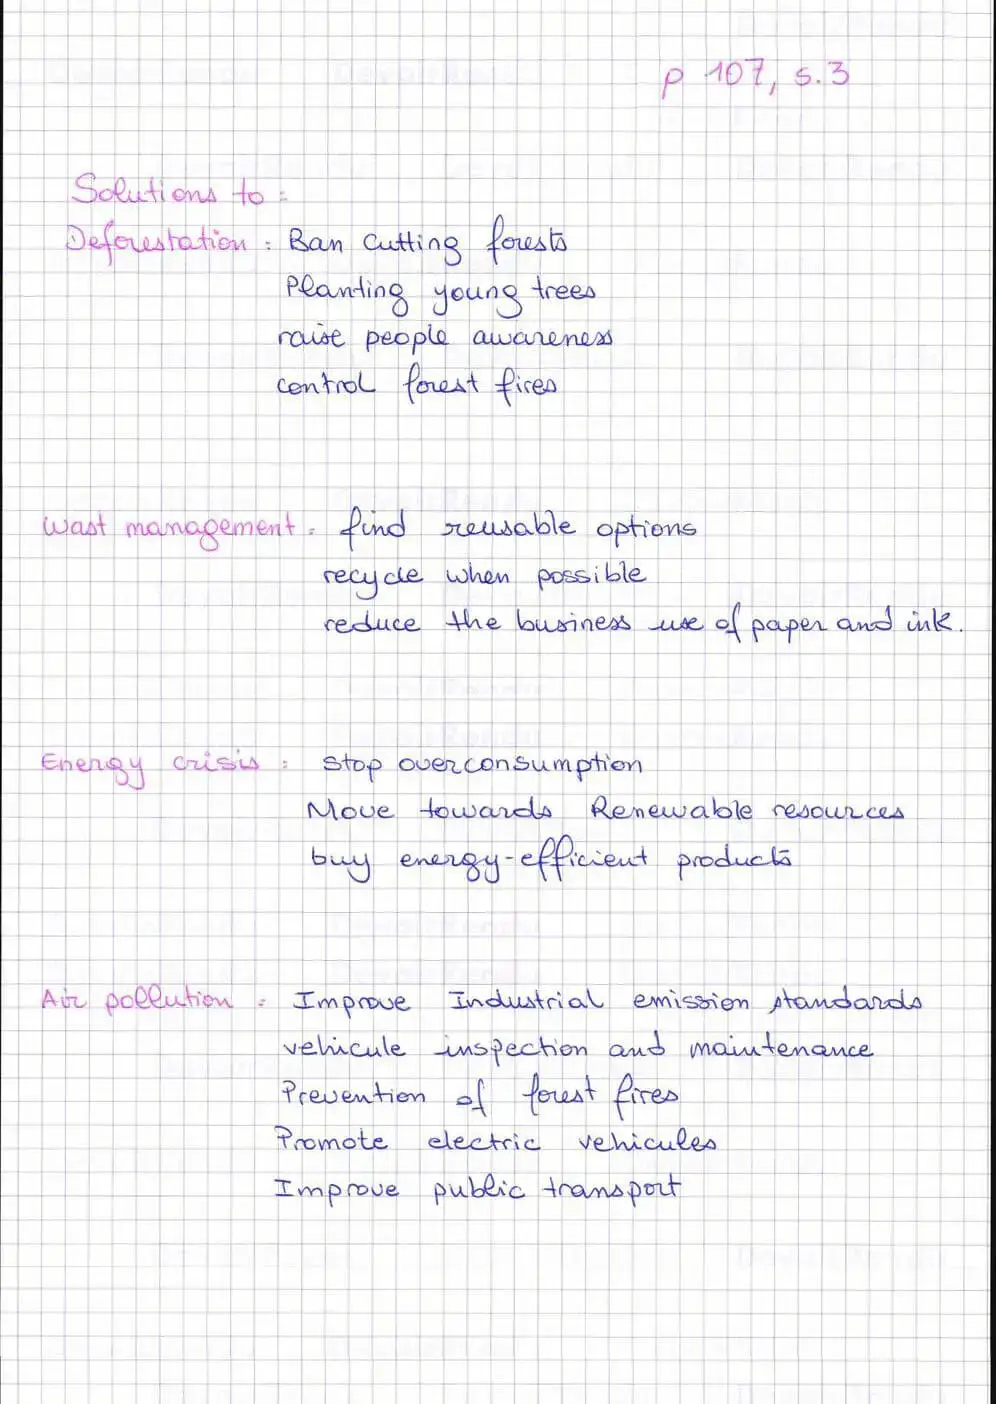 p 107, s.3
Solutions to :
Deforestation : Ban cutting forests
Planting young trees
raise people awareness
control forest fires
Wast management : find reusable options
recycle when possible
reduce the business use of paper and ink.
Energy crisis : stop overconsumption
Move towards Renewable resources
buy energy-efficient products
Air pollution : Improve Industrial emission standards
vehicule inspection and maintenance
Prevention of forest fires
Promote electric vehicules
Improve public transport